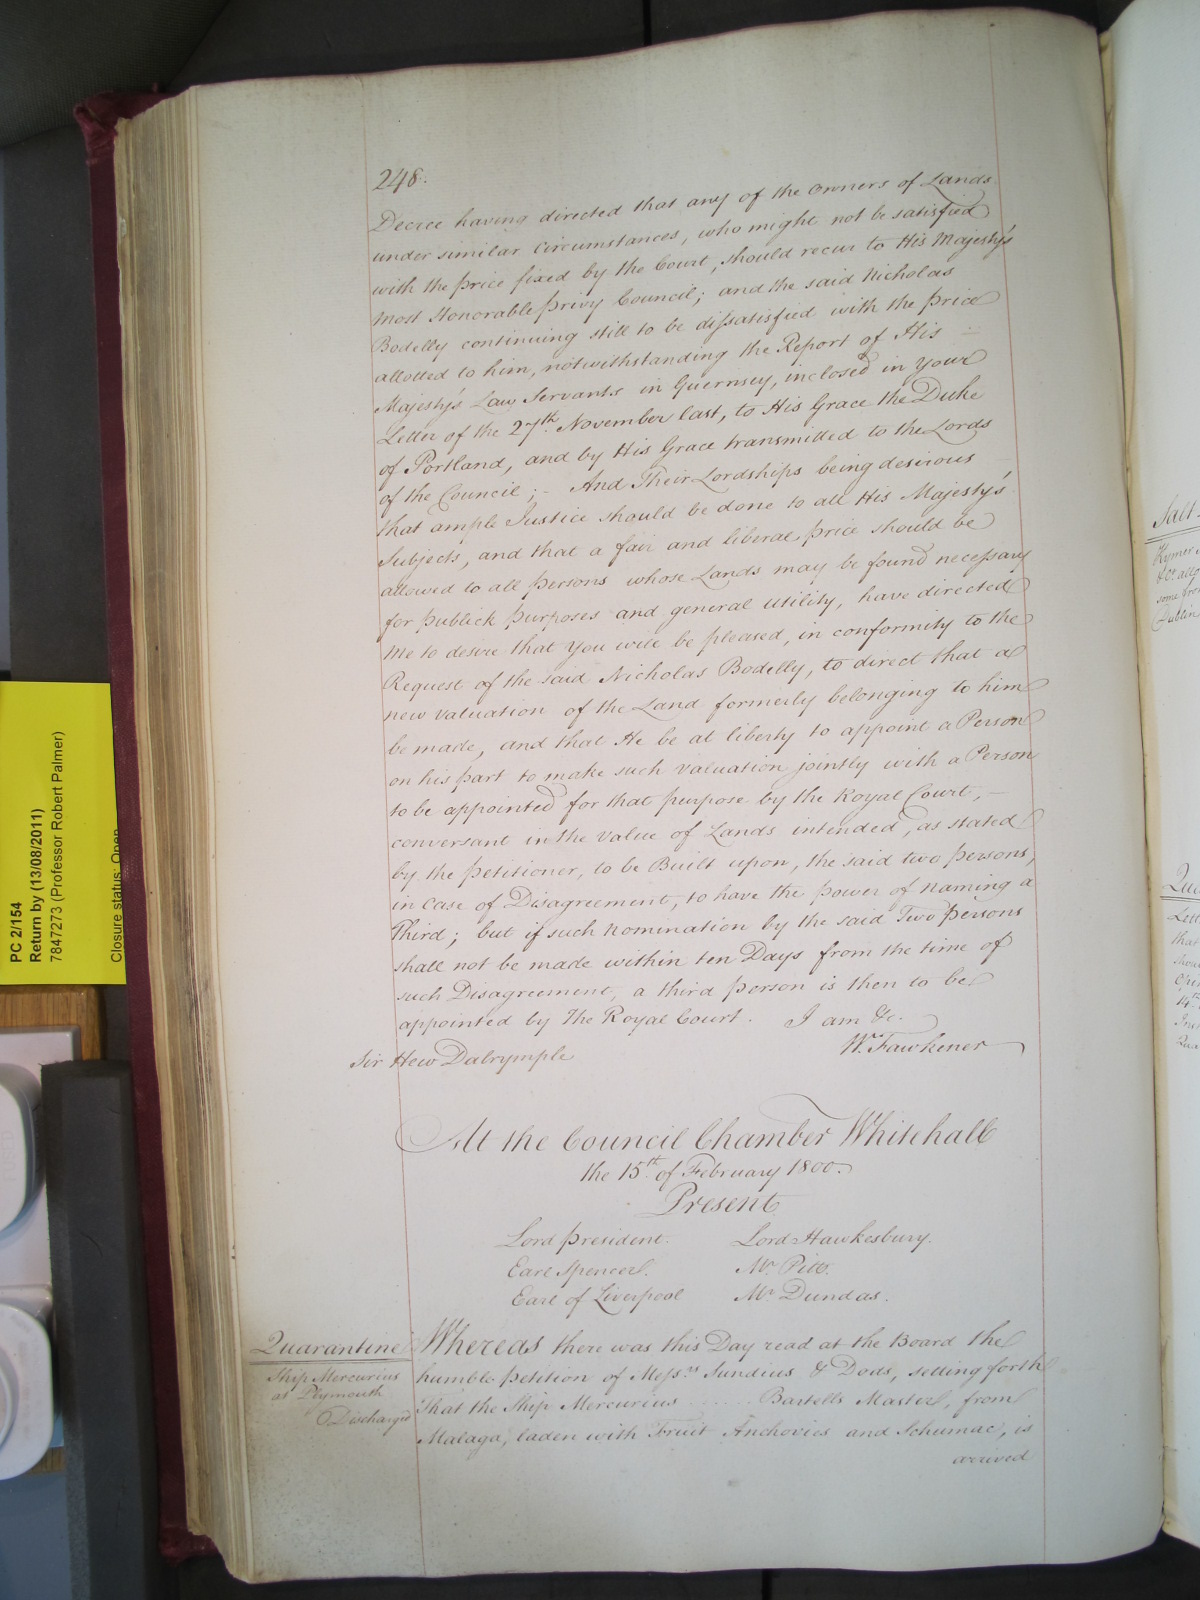 248.
Decree having directed that any of the Owners of Lands
under similar Circumstances, who might not be satisfied
with the price fixed by the Court, should recur to His Majesty's
Most Honorable privy Council; and the said Nicholas
Bodelly continuing still to be dissatisfied with the price
allotted to him, notwithstanding the Report of His
Majesty's Law Servants in Guernsey, inclosed in your
Letter of the 27th November last, to His Grace the Duke
of Portland, and by His Grace transmitted to the Lords
of the Council; - And Their Lordships being desirous
that ample Justice should be done to all His Majesty's
Subjects, and that a fair and liberal price should be
allowed to all persons whose Lands may be found necessary
for publick purposes and general utility, have directed
me to desire that You will be pleased, in conformity to the
Request of the said Nicholas Bodelly, to direct that a
new valuation of the Land formerly belonging to him
be made, and that He be at liberty to appoint a Person
on his part to make such valuation jointly with a Person
to be appointed for that purpose by the Royal Court, —
conversant in the value of Lands intended, as stated
by the petitioner, to be Built upon, the said two persons,
in case of Disagreement, to have the power of naming a
Third; but if such nomination by the said Two persons
shall not be made within ten Days from the time of
such Disagreement, a third person is then to be
appointed by The Royal Court. I am &c.
W. Fawkener
Sir Hew Dalrymple
At the Council Chamber Whitehall
the 15th of February 1800.
Present
Lord president. Lord Hawkesbury.
Earl Spencer. Mr. Pitt.
Earl of Liverpool Mr Dundas.
Quarantine
Ship Mercurius
at Plymouth
Discharged
Whereas there was this Day read at the Board the
humble petition of Messrs Sundius & Dods, setting forth
That the Ship Mercurius ..... Bartells Master, from
Malaga, laden with Fruit Anchovies and Schumac, is
arrived
PC 2/154
Return by (13/08/2011)
7847273 (Professor Robert Palmer)
Closure status: Open
Salt
Dublin